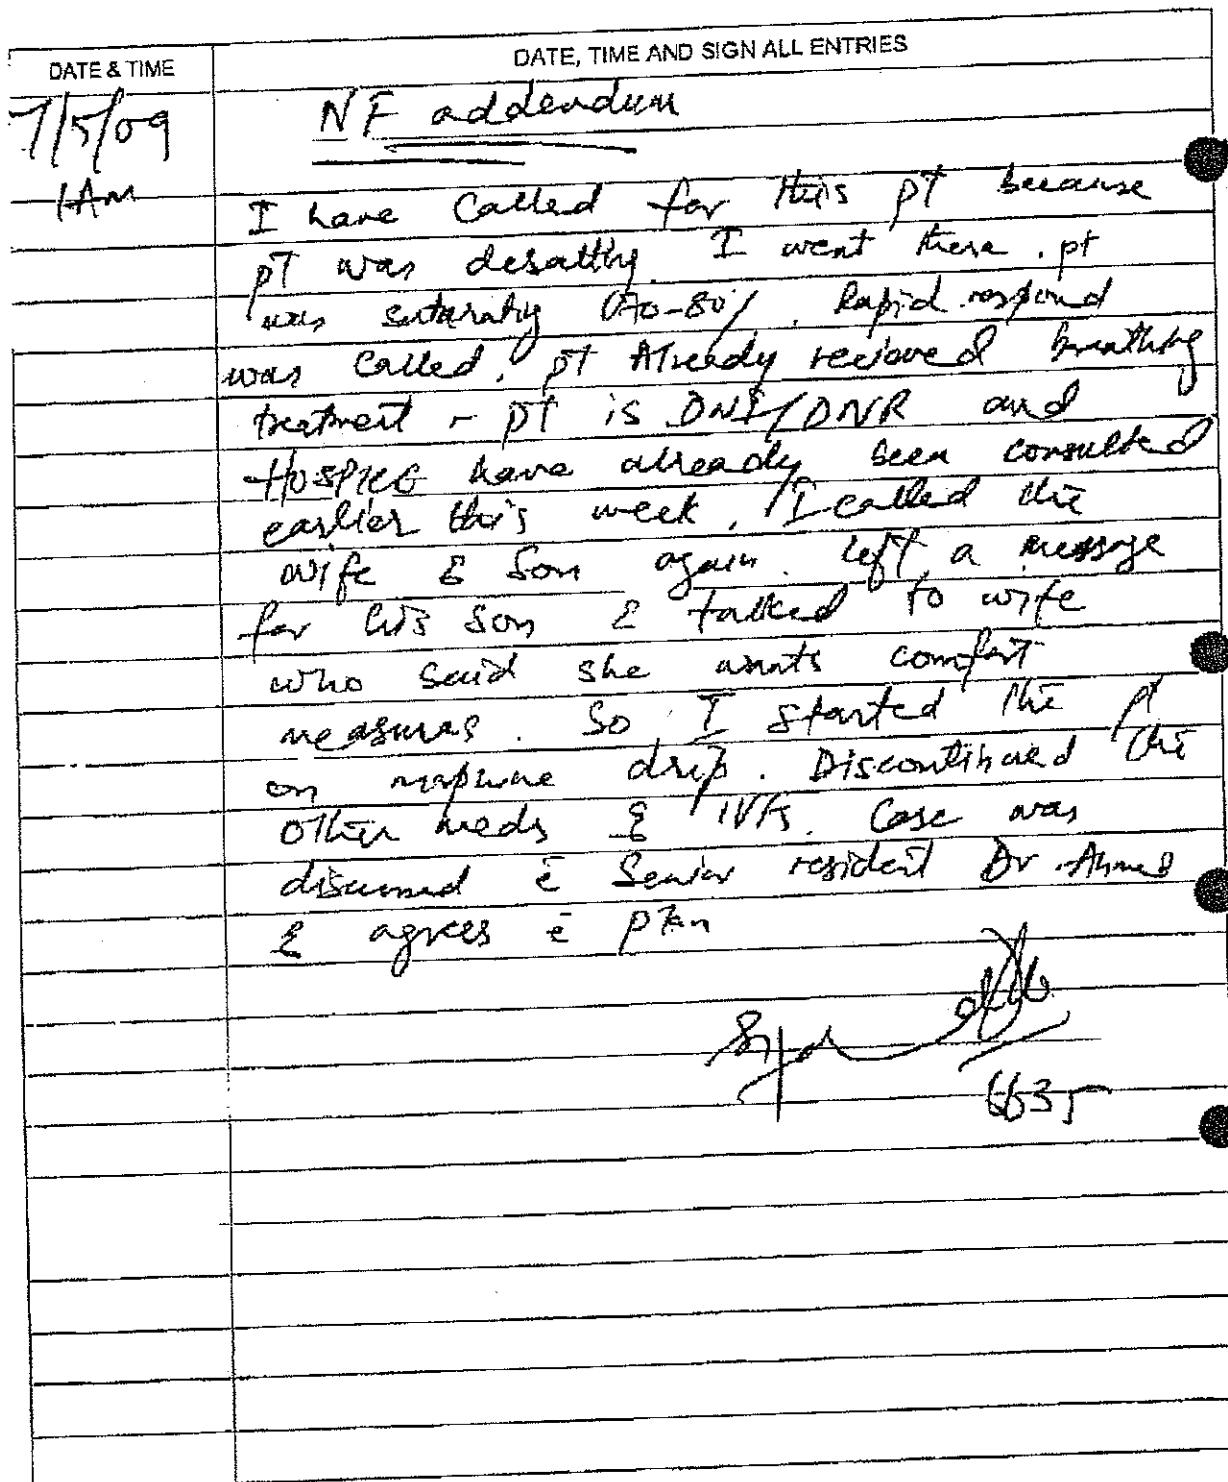 DATE & TIME
DATE, TIME AND SIGN ALL ENTRIES
7/5/09
1AM
NF addendum
I have Called for this pt because
pt was desatting. I went there. pt
was saturating 70-80%. Rapid respond
was called. pt Already recieved breathing
treatment - pt is DNI/DNR and
HOSPICE have already been consulted
earlier this week. I called the
wife & Son again. left a message
for his son & talked to wife
who said she wants comfort
measures. So I started the pt
on morphine drip. Discontinued the
other meds & IVFs. Case was
discussed c̄ Senior resident Dr. Ahmed
& agrees c̄ plan
6635